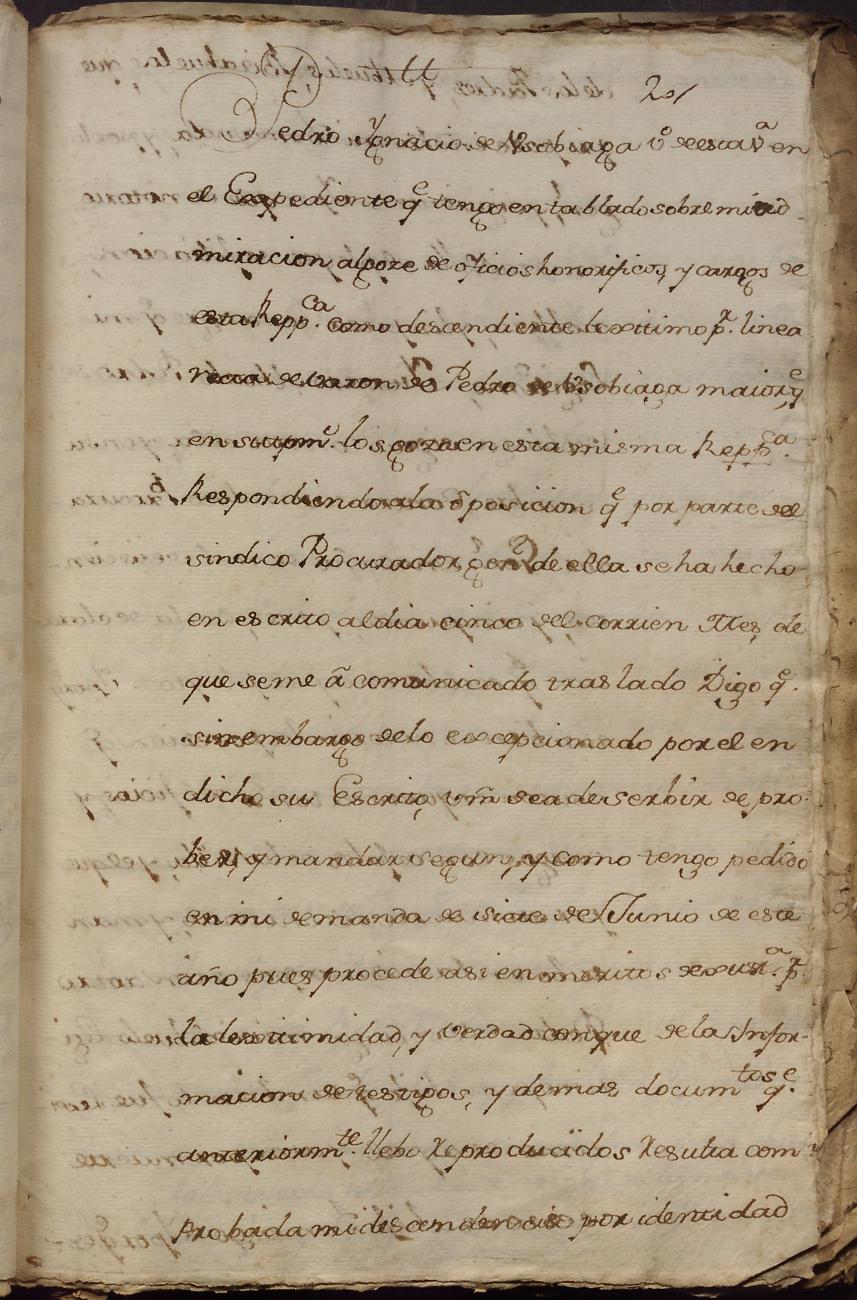 201
Pedro Ygnacio de Vsobiaga vº de esta vª en
el Expediente qe tengo entablado sobre mi ad
miracion algore de oficios honorificos, y cargos de
esta Reppca. como descendiente lexitimo pr. linea
recta de varon de Pedro de Vsobiaga maior, qe
en su tpmo. los gozo en esta misma Reppca.
Respondiendo a la oposicion qe por parte del
sindico Procurador, genl de ella se ha hecho
en escrito al dia cinco del corrien Mes, de
que se me â comunicado traslado Digo qe.
sin embargo de lo excepcionado por el en
dicho su Escrito, vm̃ sea de serbir de pro
beer, y mandar segun, y como tengo pedido
en mi demanda de siete de Junio de este
año pues procede asi en meritos de justa. pr.
la lexitimidad, y verdad conque de la Infor-
macion de testigos, y demas documtos qe.
anteriormte. llebo Reproducidos Resulta com
probada mi descendencia por identidad